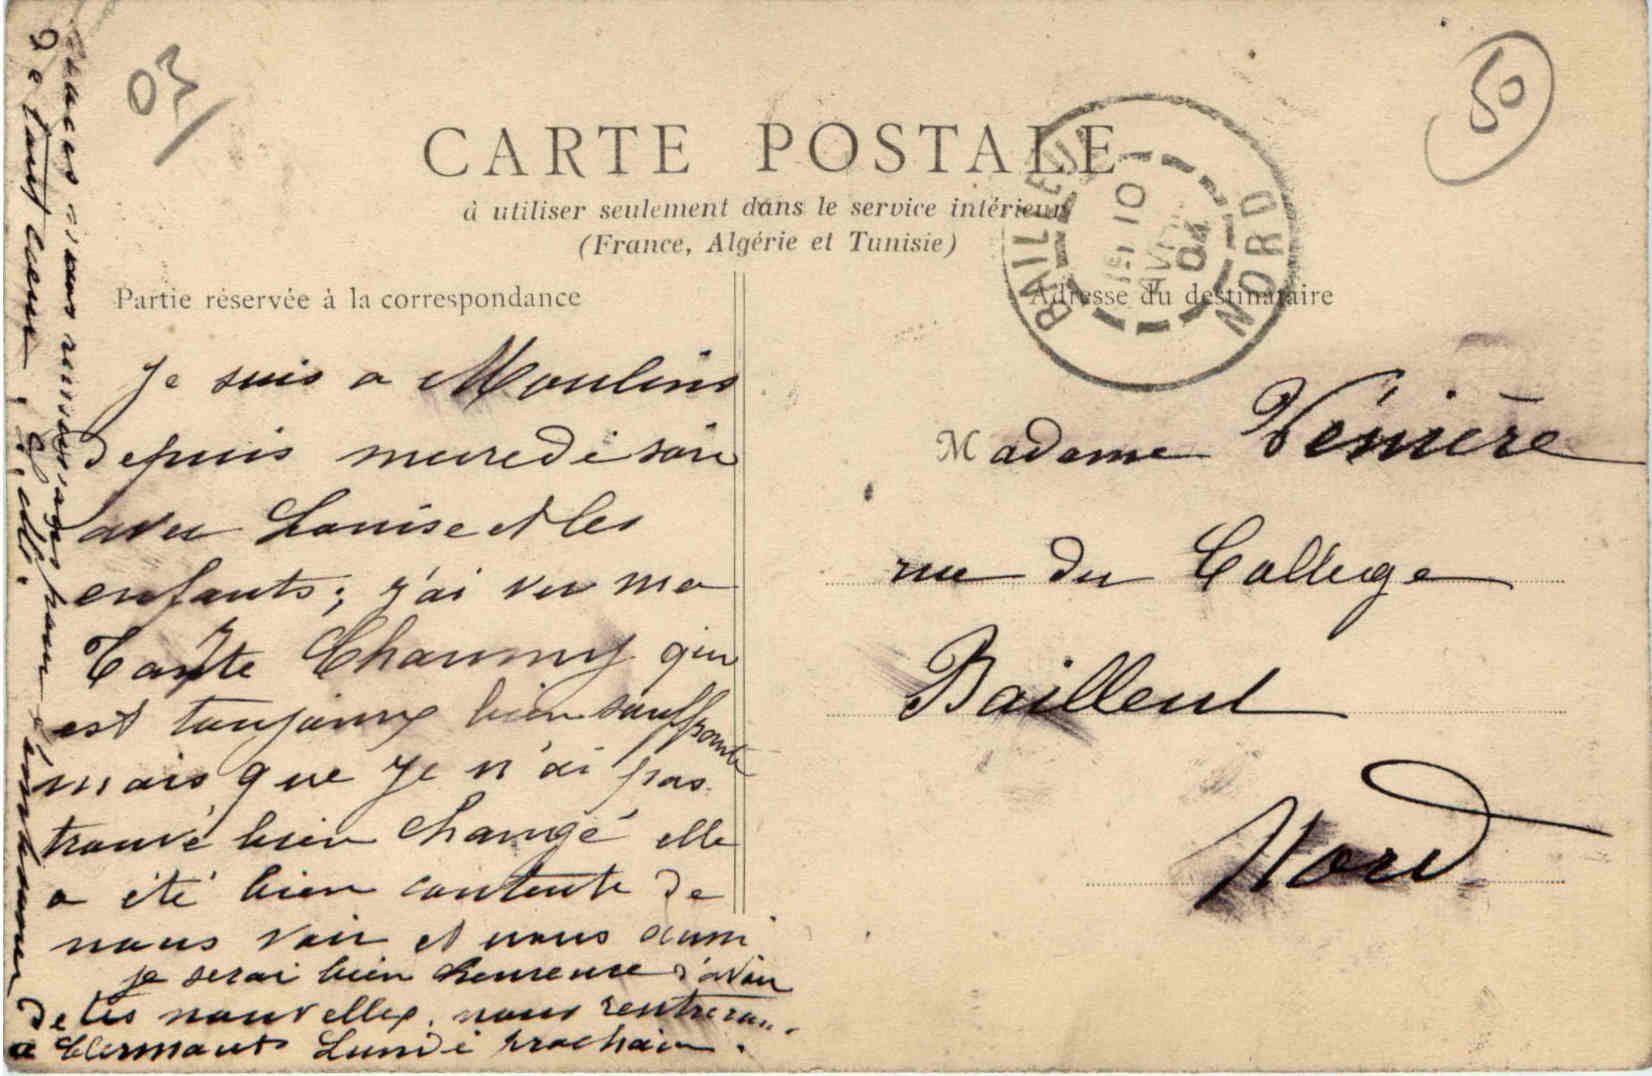 03
50
CARTE POSTALE
à utiliser seulement dans le service intérieur
(France, Algérie et Tunisie)
BAILLEUL NORD
10
AVRIL
04
Partie réservée à la correspondance
Adresse du destinataire
Je suis a Moulins
depuis mercredi soir
avec Louise et les
enfants; j'ai vu ma
Tante Chaumy qui
est toujours bien souffrante
mais que je n'ai pas
trouvé bien changé elle
a été bien contente de
nous voir et nous aussi
je serai bien heureuse d'avoir
de tes nouvelles. nous rentrerons
a Clermont Lundi prochain.
nous réunissons pour
de tout cœur
Madame Vénière
rue du Collège
Bailleul
Nord